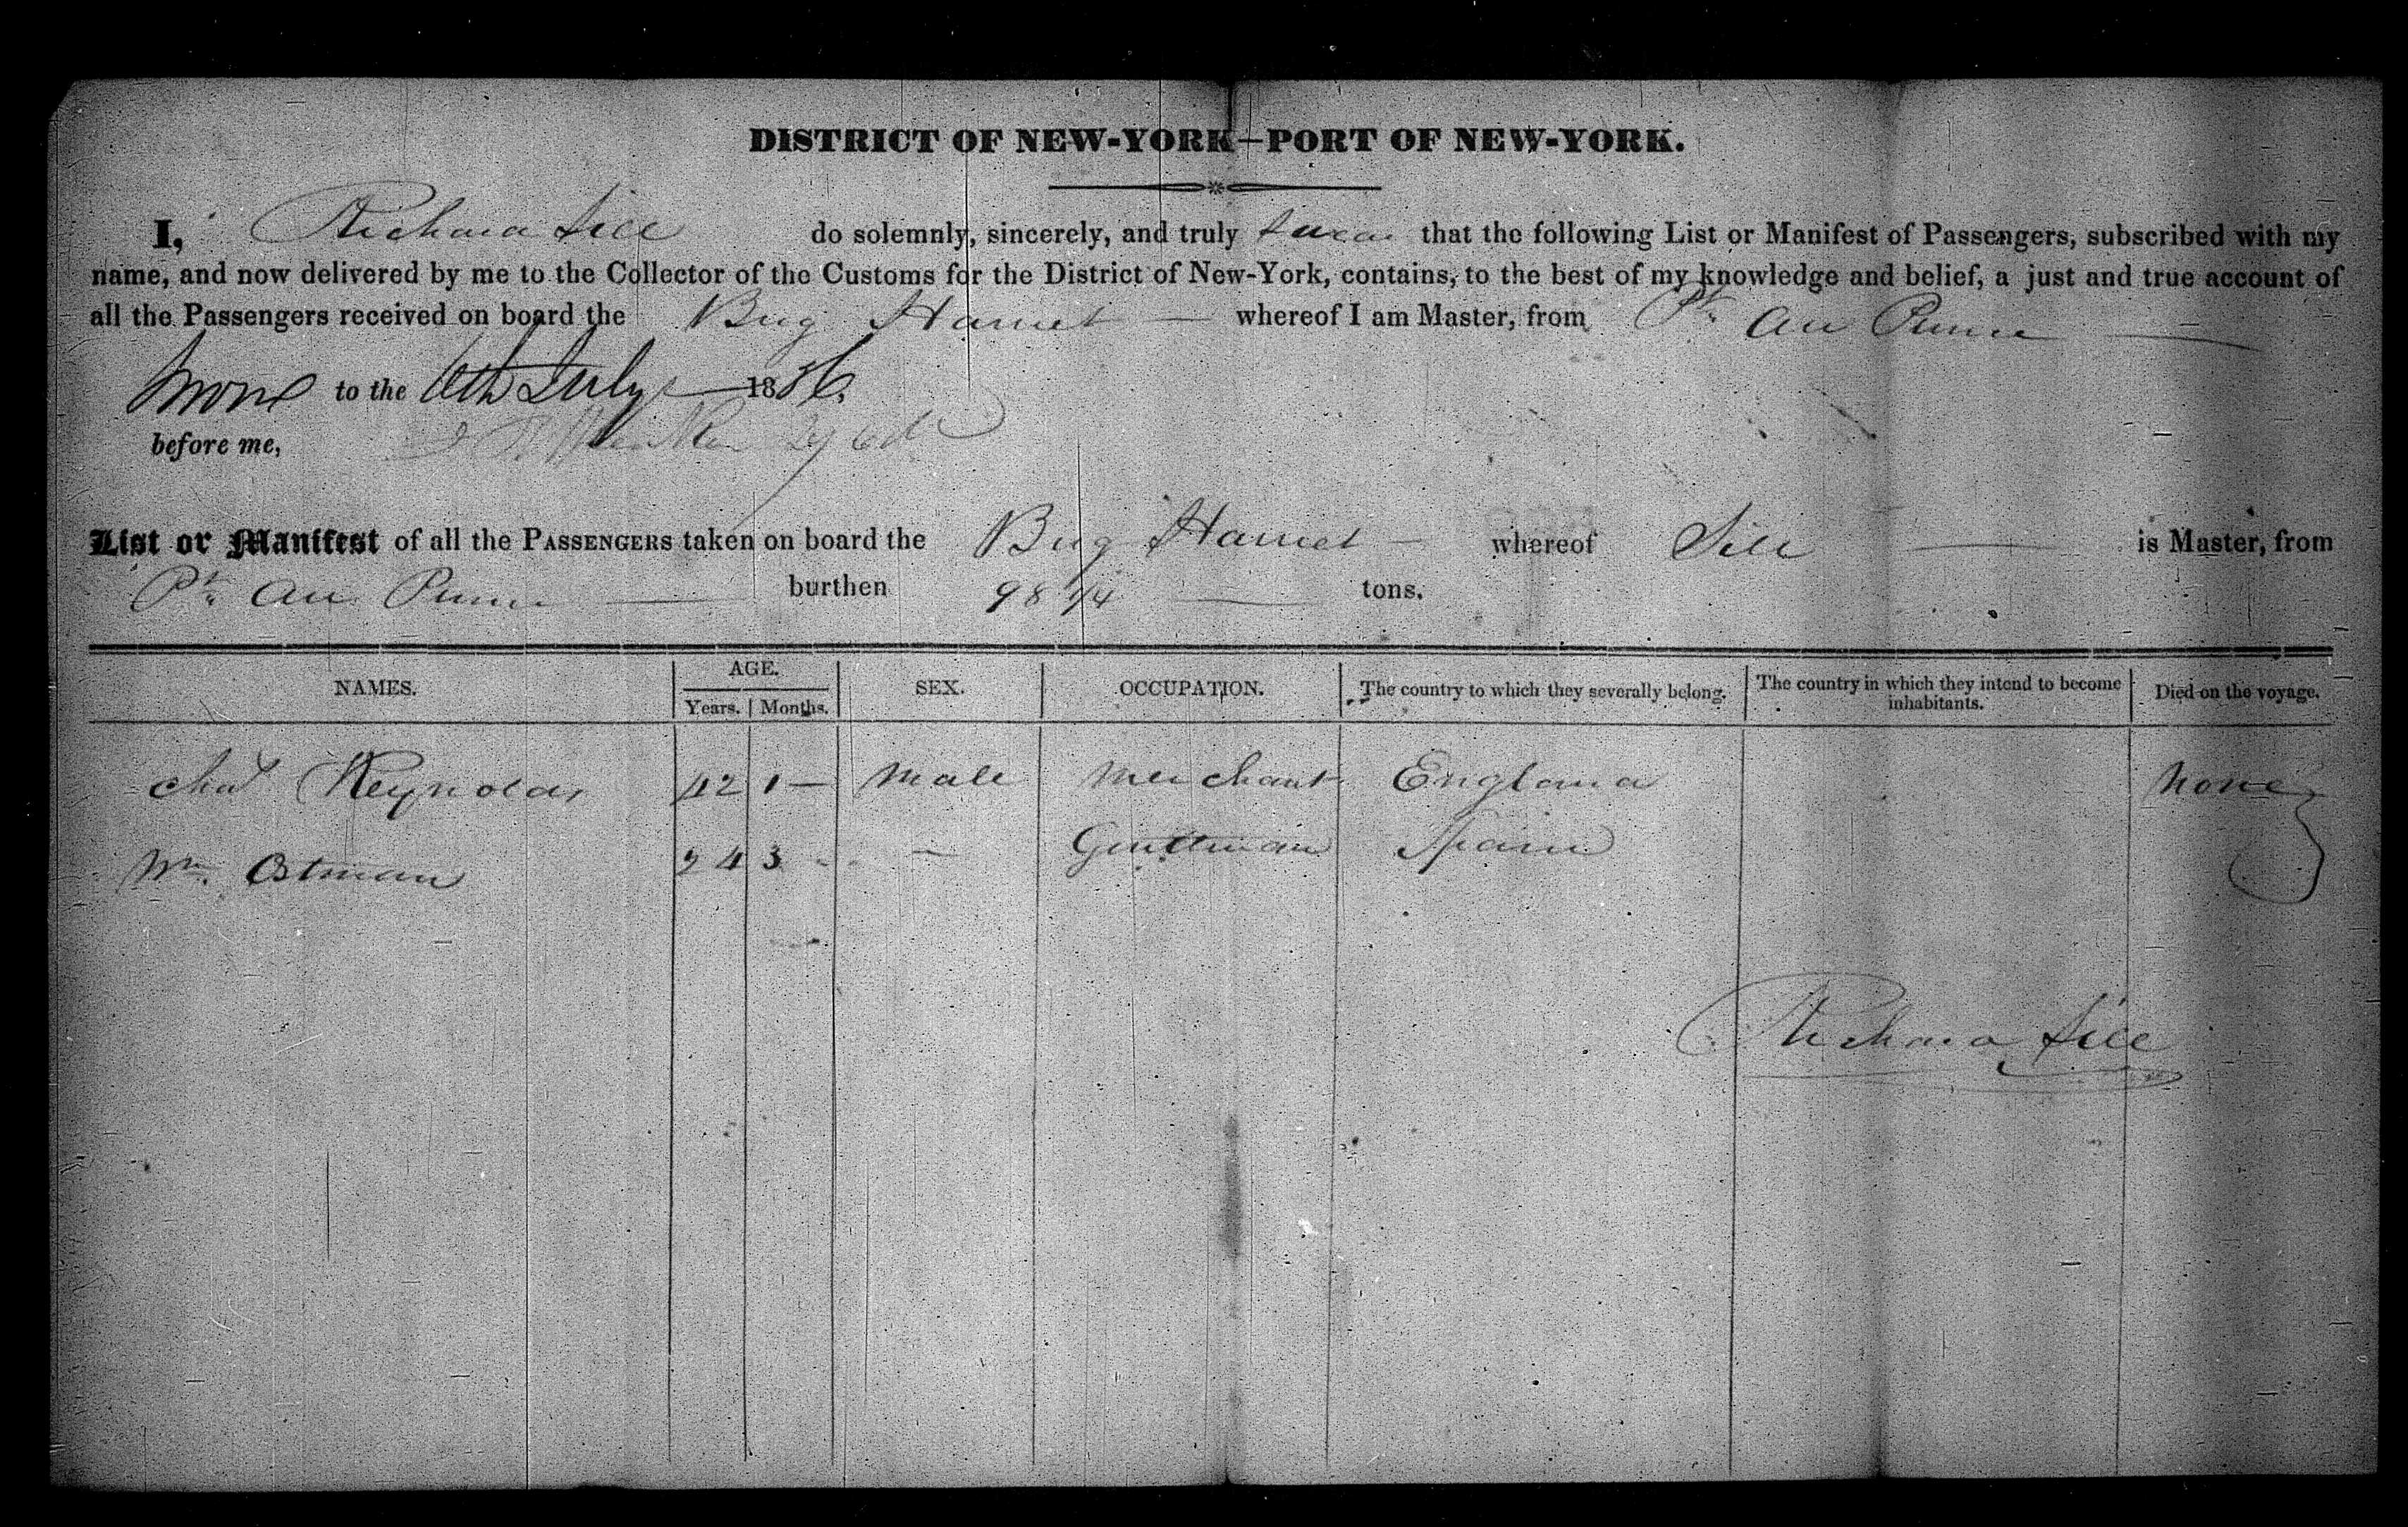 DISTRICT OF NEW-YORK—PORT OF NEW-YORK.
I, Richard Sill do solemnly, sincerely, and truly swear that the following List or Manifest of Passengers, subscribed with my
name, and now delivered by me to the Collector of the Customs for the District of New-York, contains, to the best of my knowledge and belief, a just and true account of
all the Passengers received on board the Brig Harriet — whereof I am Master, from Pt. au Prince —
Sworn to the 6th July — 1836.
before me,
List or Manifest of all the PASSENGERS taken on board the Brig Harriet — whereof Sill — is Master, from
Pt. au Prince — burthen 98 1/4 — tons.
NAMES. AGE. SEX. OCCUPATION. The country to which they severally belong. The country in which they intend to become inhabitants. Died on the voyage.
Years. Months.
Chas Reynolds 42 1 — Male Merchant England None
Wm. Ostman 24 3 - — Gentleman Spain
Richard Sill